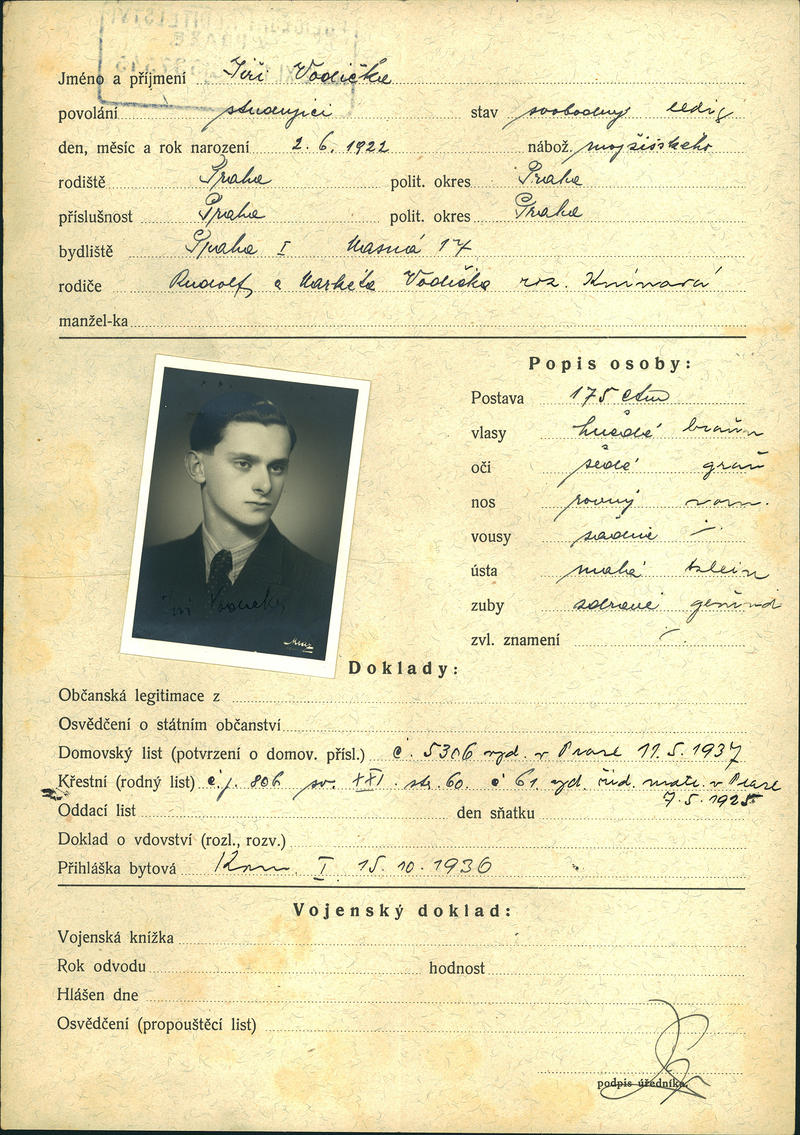 Jméno a příjmení Jiří Vodička
povolání studující stav svobodný ledig
den, měsíc a rok narození 2. 6. 1922 nábož. mojžíšského
rodiště Praha polit. okres Praha
příslušnost Praha polit. okres Praha
bydliště Praha I Masná 17
rodiče Rudolf a Markéta Vodička roz.
manžel-ka
Popis osoby:
Postava 175 ctm
vlasy hnědé braun
oči šedé grau
nos rovný norm.
vousy žádné
ústa malá klein
zuby zdravé gesund
zvl. znamení
Jiří Vodička
Doklady:
Občanská legitimace z
Osvědčení o státním občanství
Domovský list (potvrzení o domov. přísl.) č. 5306 vyd. v Praze 11. 5. 1937
Křestní (rodný list) č. j. 806 sv. XXI str. 60. č 61 vyd. žid. matr. v Praze
7. 5. 1925
Oddací list den sňatku
Doklad o vdovství (rozl., rozv.)
Přihláška bytová Kom. I 15. 10. 1936
Vojenský doklad:
Vojenská knížka
Rok odvodu hodnost
Hlášen dne
Osvědčení (propouštěcí list)
podpis úředníka.